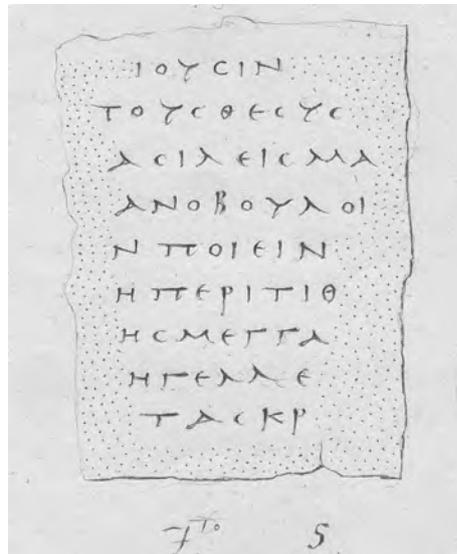 ΙΟΥϹΙΝ
ΤΟΥϹΘΕϹΥϹ
ΑϹΙΛΕΙϹΜΑ
ΑΝΟΒΟΥΛΟΙ
Ν ΠΟΙΕΙΝ
ΗΠΕΡΙΤΙΘ
ΗϹΜΕΓΓΑ
ΗΓΕΛΛΕ
ΤΑϹΚΡ
7To 5